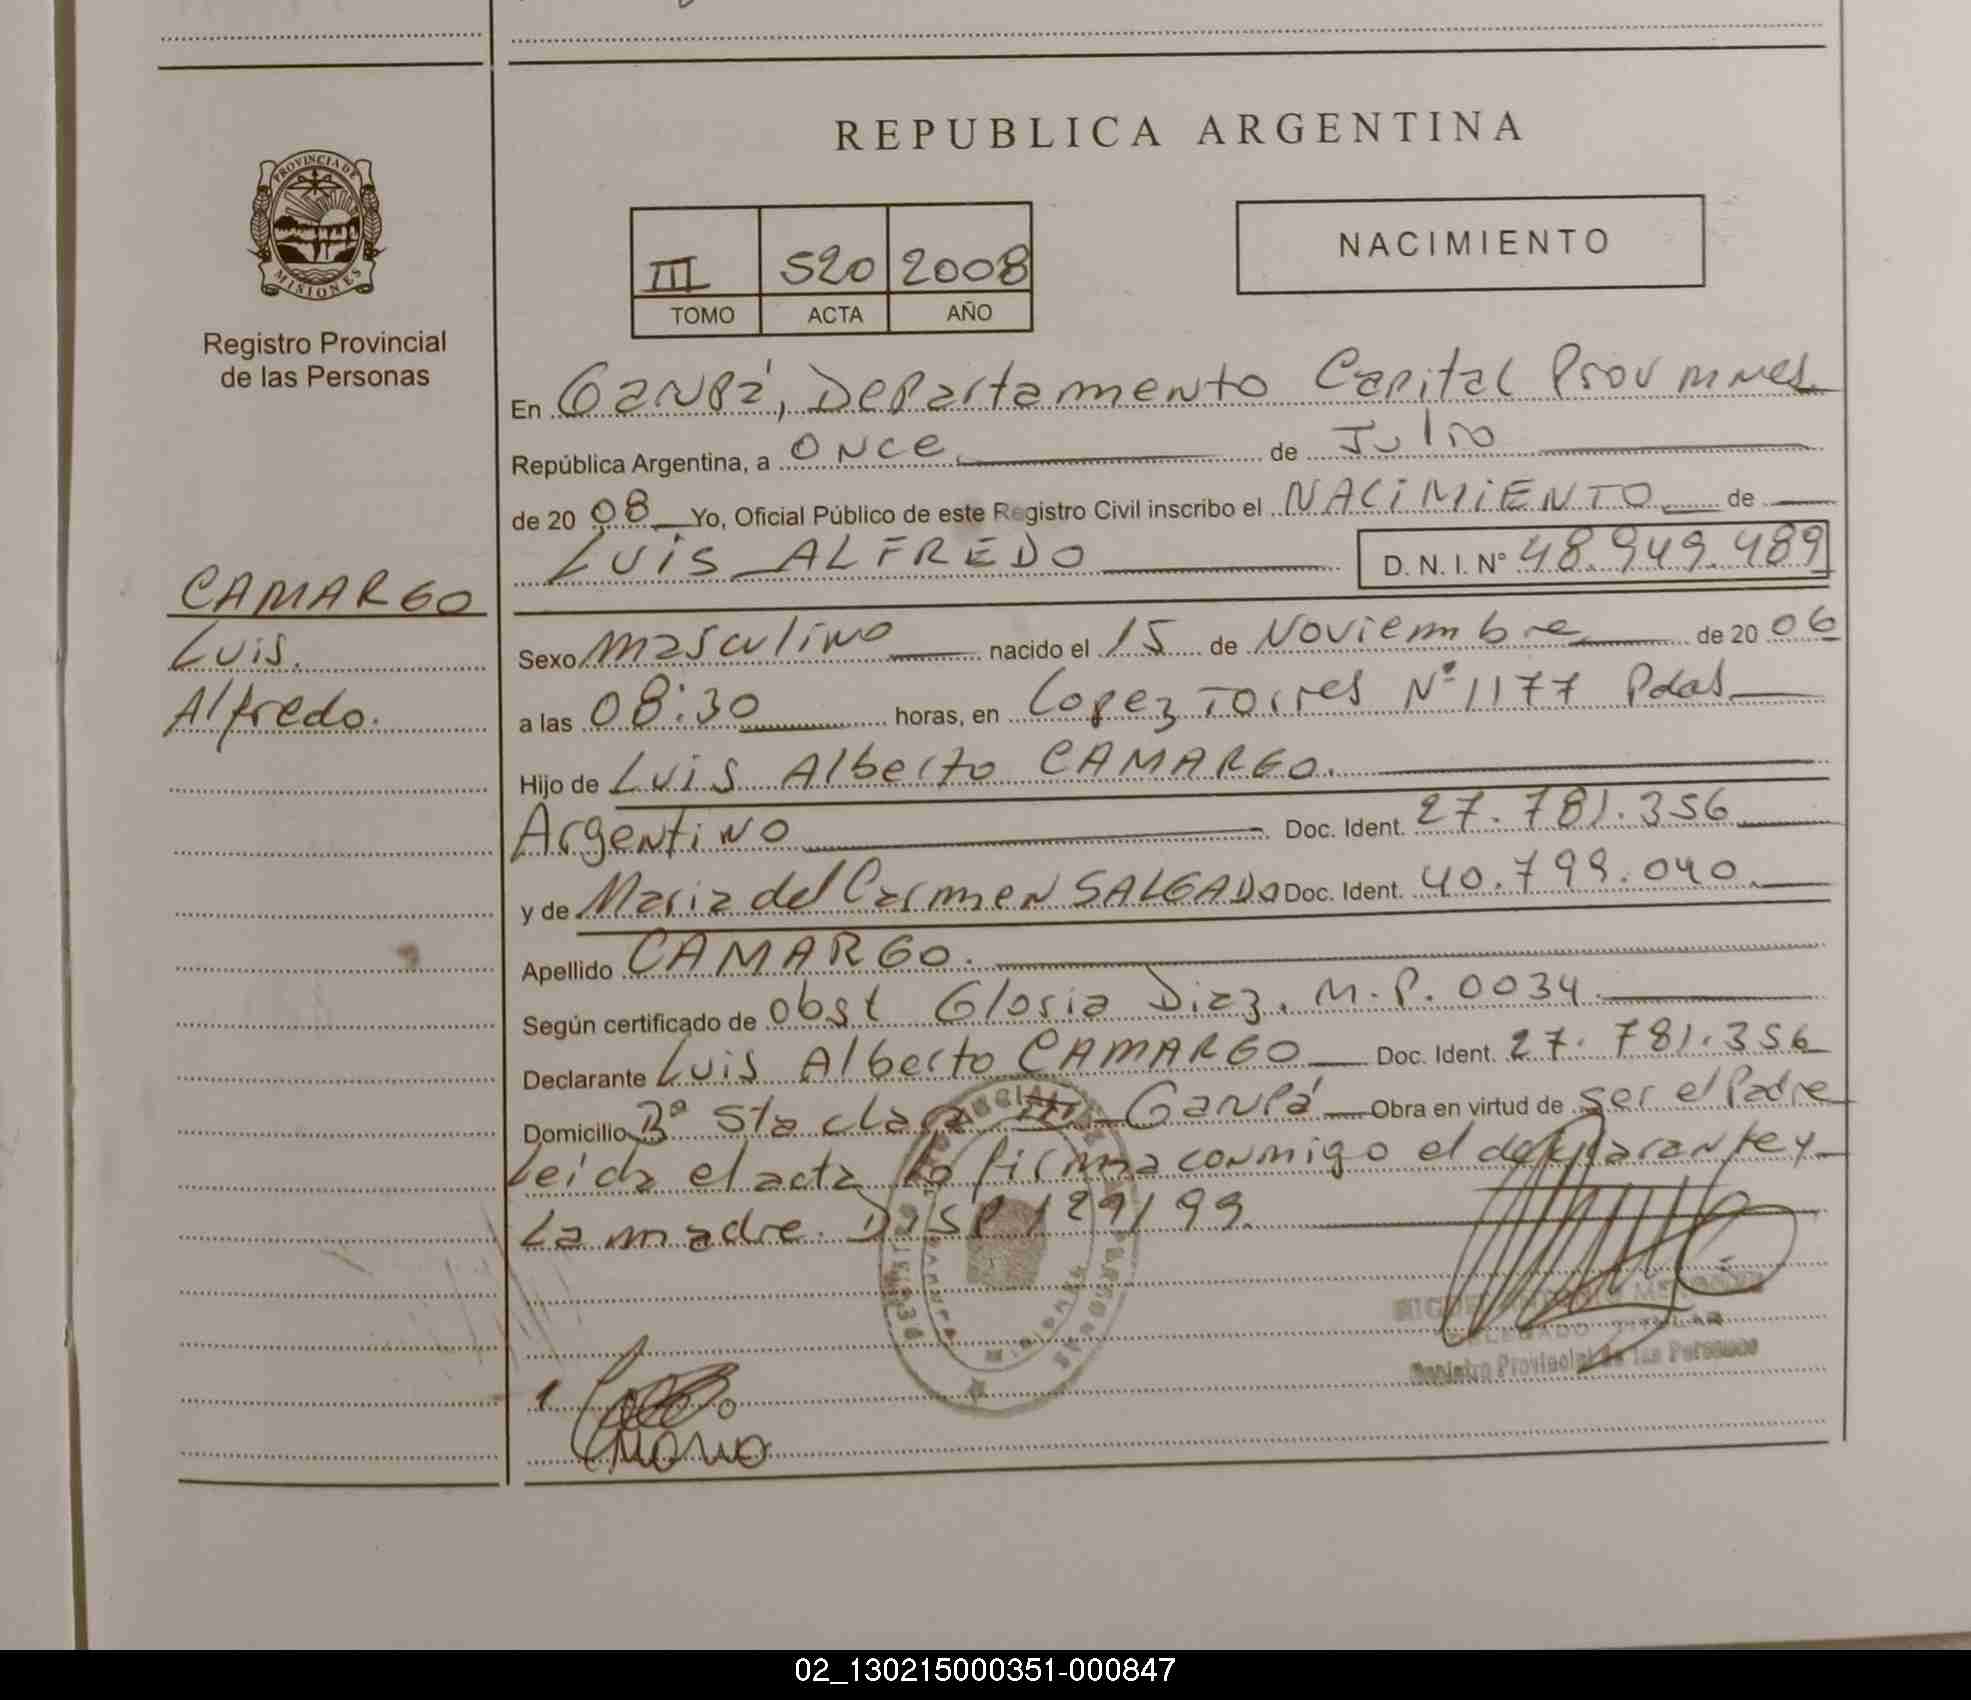 PROVINCIA DE
MISIONES
Registro Provincial
de las Personas
CAMARGO
Luis.
Alfredo.
REPUBLICA ARGENTINA
III 520 2008
TOMO ACTA AÑO
NACIMIENTO
En Garupá, Departamento Capital Prov Mnes.
República Argentina, a once de Julio
de 20 08 Yo, Oficial Público de este Registro Civil inscribo el NACIMIENTO de
LUIS ALFREDO D. N. I. Nº 48.949.489
Sexo masculino nacido el 15 de Noviembre de 20 06
a las 08:30 horas, en Lopez Torres Nº 1177 Pdas
Hijo de Luis Alberto CAMARGO.
Argentino Doc. Ident. 27.781.356
y de Maria del Carmen SALGADO Doc. Ident. 40.799.040.
Apellido CAMARGO.
Según certificado de obst Gloria Diaz. M.P. 0034.
Declarante Luis Alberto CAMARGO Doc. Ident. 27.781.356
Domicilio Bº Sta clara III Garupá Obra en virtud de ser el Padre
Leida el acta la firma conmigo el declarante y
La madre. Disp 129/99.
DELEGADO TITULAR
Registro Provincial de las Personas
02_130215000351-000847